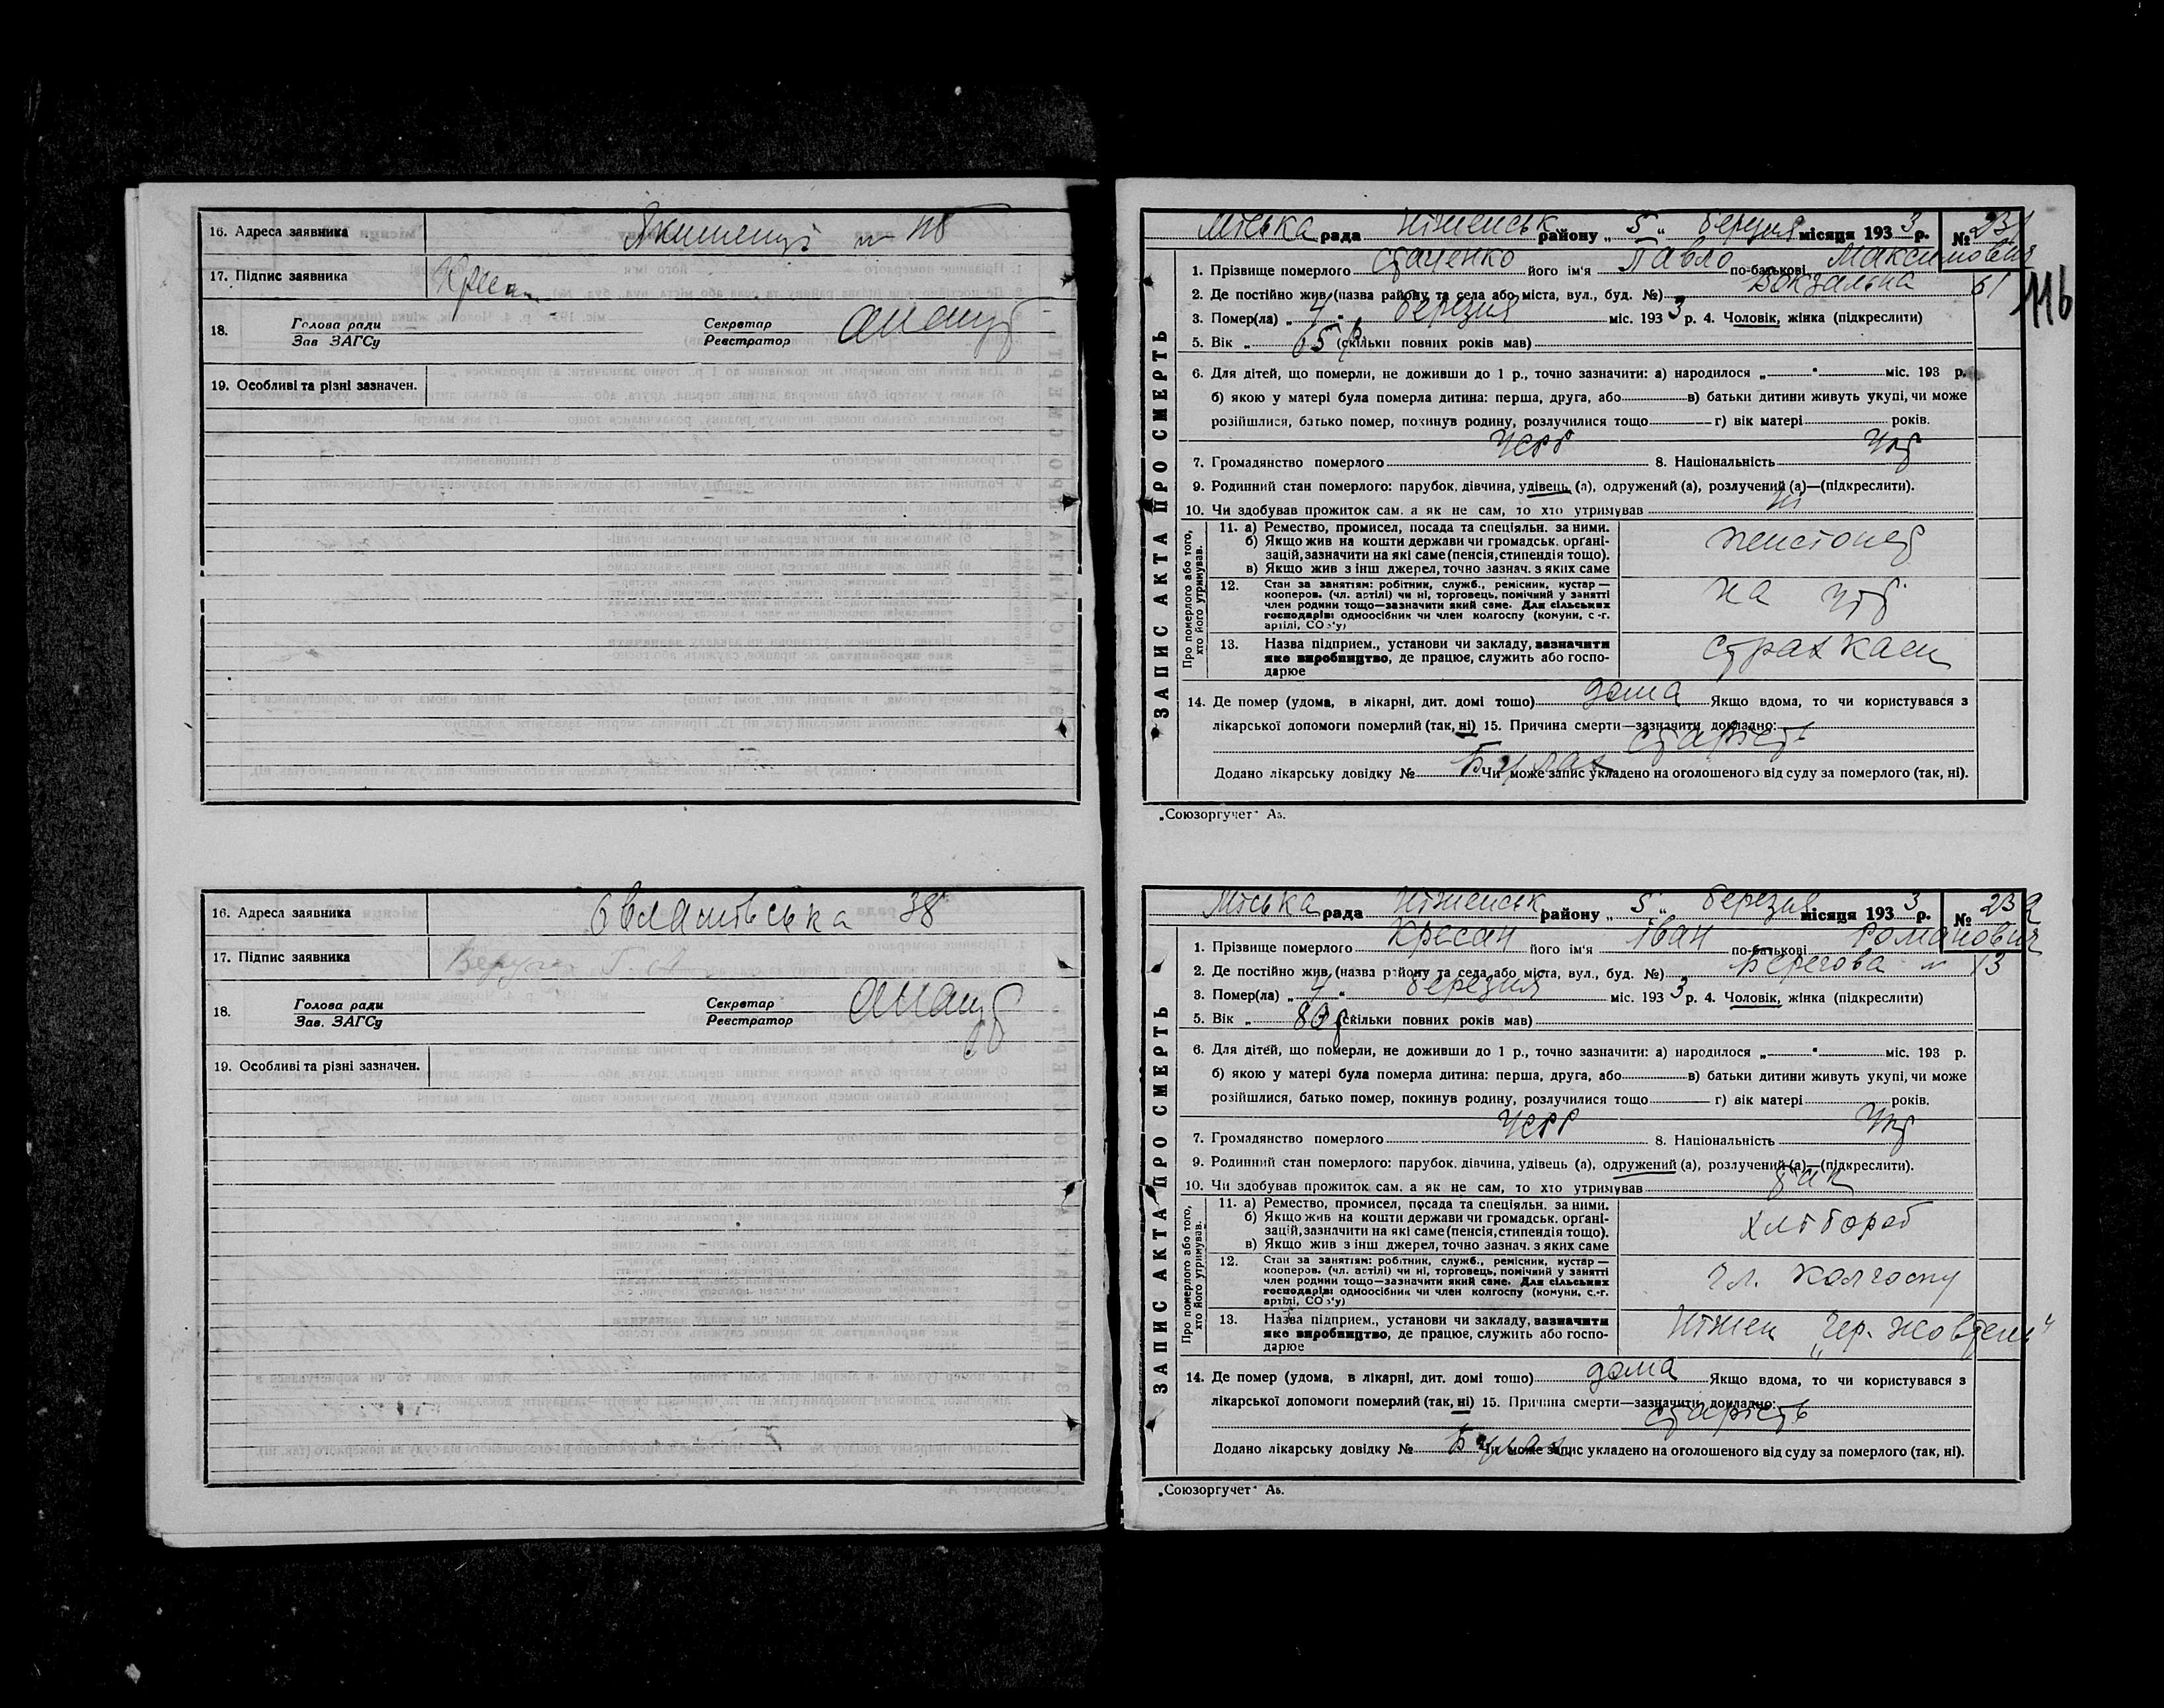 16. Адреса заявника
17. Підпис заявника Кресан
18. Голова ради
Зав ЗАГСу
Секретар
Реєстратор
19. Особливі та різні зазначен.
16. Адреса заявника 38
17. Підпис заявника
18. Голова ради
Зав. ЗАГСу
Секретар
Реєстратор
19. Особливі та різні зазначен.
ЗАПИС АКТА ПРО СМЕРТЬ
Міська рада Ніженськ району „ 5 “ березня місяця 1933 р. № 231
116
1. Прізвище померлого Стаченко його ім'я Павло по-батькові Максимович
2. Де постійно жив (назва району та села або міста, вул., буд. №) Вокзальна 61
3. Помер(ла) „ 4 “ березня міс. 1933 р. 4. Чоловік, жінка (підкреслити)
5. Вік „ 65 р. (скільки повних років мав)
6. Для дітей, що померли, не доживши до 1 р., точно зазначити: а) народилося „ “ міс. 193 р.
б) якою у матері була померла дитина: перша, друга, або в) батьки дитини живуть укупі, чи може
розійшлися, батько помер, покинув родину, розлучилися тощо г) вік матері років.
7. Громадянство померлого УСРР 8. Національність Укр
9. Родинний стан померлого: парубок, дівчина, удівець (а), одружений (а), розлучений (а)—(підкреслити).
10. Чи здобував прожиток сам, а як не сам, то хто утримував ні
Про померлого або того, хто його утримував.
11. а) Ремество, промисел, посада та спеціяльн. за ними.
б) Якщо жив на кошти держави чи громадськ. органі-
зацій, зазначити на які саме (пенсія, стипендія тощо).
в) Якщо жив з інш джерел, точно зазнач. з яких саме
пенсіонер
12. Стан за занятіям: робітник, служб., ремісник, кустар—
кооперов. (чл. артілі) чи ні, торговець, помічний у занятті
член родини тощо—зазначити який саме. Для сільських
господарів: одноосібник чи член колгоспу (комуни, с.-г.
артілі, СОЗ'у)
на утр.
13. Назва підприєм., установи чи закладу, зазначити
яке виробництво, де працює, служить або госпо-
дарює
страх каси
14. Де помер (удома, в лікарні, дит. домі тощо) дома Якщо вдома, то чи користувався з
лікарської допомоги померлий (так, ні) 15. Причина смерти—зазначити докладно:
старість
Додано лікарську довідку № Чи може запис укладено на оголошеного від суду за померлого (так, ні).
„Союзоргучет“
ЗАПИС АКТА ПРО СМЕРТЬ
Міська рада Ніженськ району „ 5 “ березня місяця 1933 р. № 232
1. Прізвище померлого Кресан його ім'я Іван по-батькові Романович
2. Де постійно жив (назва району та села або міста, вул., буд. №) Берегова № 13
3. Помер(ла) „ 4 “ березня міс. 1933 р. 4. Чоловік, жінка (підкреслити)
5. Вік „ 80 р (скільки повних років мав)
6. Для дітей, що померли, не доживши до 1 р., точно зазначити: а) народилося „ “ міс. 193 р.
б) якою у матері була померла дитина: перша, друга, або в) батьки дитини живуть укупі, чи може
розійшлися, батько помер, покинув родину, розлучилися тощо г) вік матері років.
7. Громадянство померлого УСРР 8. Національність Укр
9. Родинний стан померлого: парубок, дівчина, удівець (а), одружений (а), розлучений (а)—(підкреслити).
10. Чи здобував прожиток сам, а як не сам, то хто утримував так
Про померлого або того, хто його утримував.
11. а) Ремество, промисел, посада та спеціяльн. за ними.
б) Якщо жив на кошти держави чи громадськ. органі-
зацій, зазначити на які саме (пенсія, стипендія тощо).
в) Якщо жив з інш джерел, точно зазнач. з яких саме
хлібороб
12. Стан за занятіям: робітник, служб., ремісник, кустар—
кооперов. (чл. артілі) чи ні, торговець, помічний у занятті
член родини тощо—зазначити який саме. Для сільських
господарів: одноосібник чи член колгоспу (комуни, с.-г.
артілі, СОЗ'у)
чл. колгоспу
13. Назва підприєм., установи чи закладу, зазначити
яке виробництво, де працює, служить або госпо-
дарює
Ніжен „Чер. Жовтень“
14. Де помер (удома, в лікарні, дит. домі тощо) дома Якщо вдома, то чи користувався з
лікарської допомоги померлий (так, ні) 15. Причина смерти—зазначити докладно:
старість
Додано лікарську довідку № Чи може запис укладено на оголошеного від суду за померлого (так, ні).
„Союзоргучет“